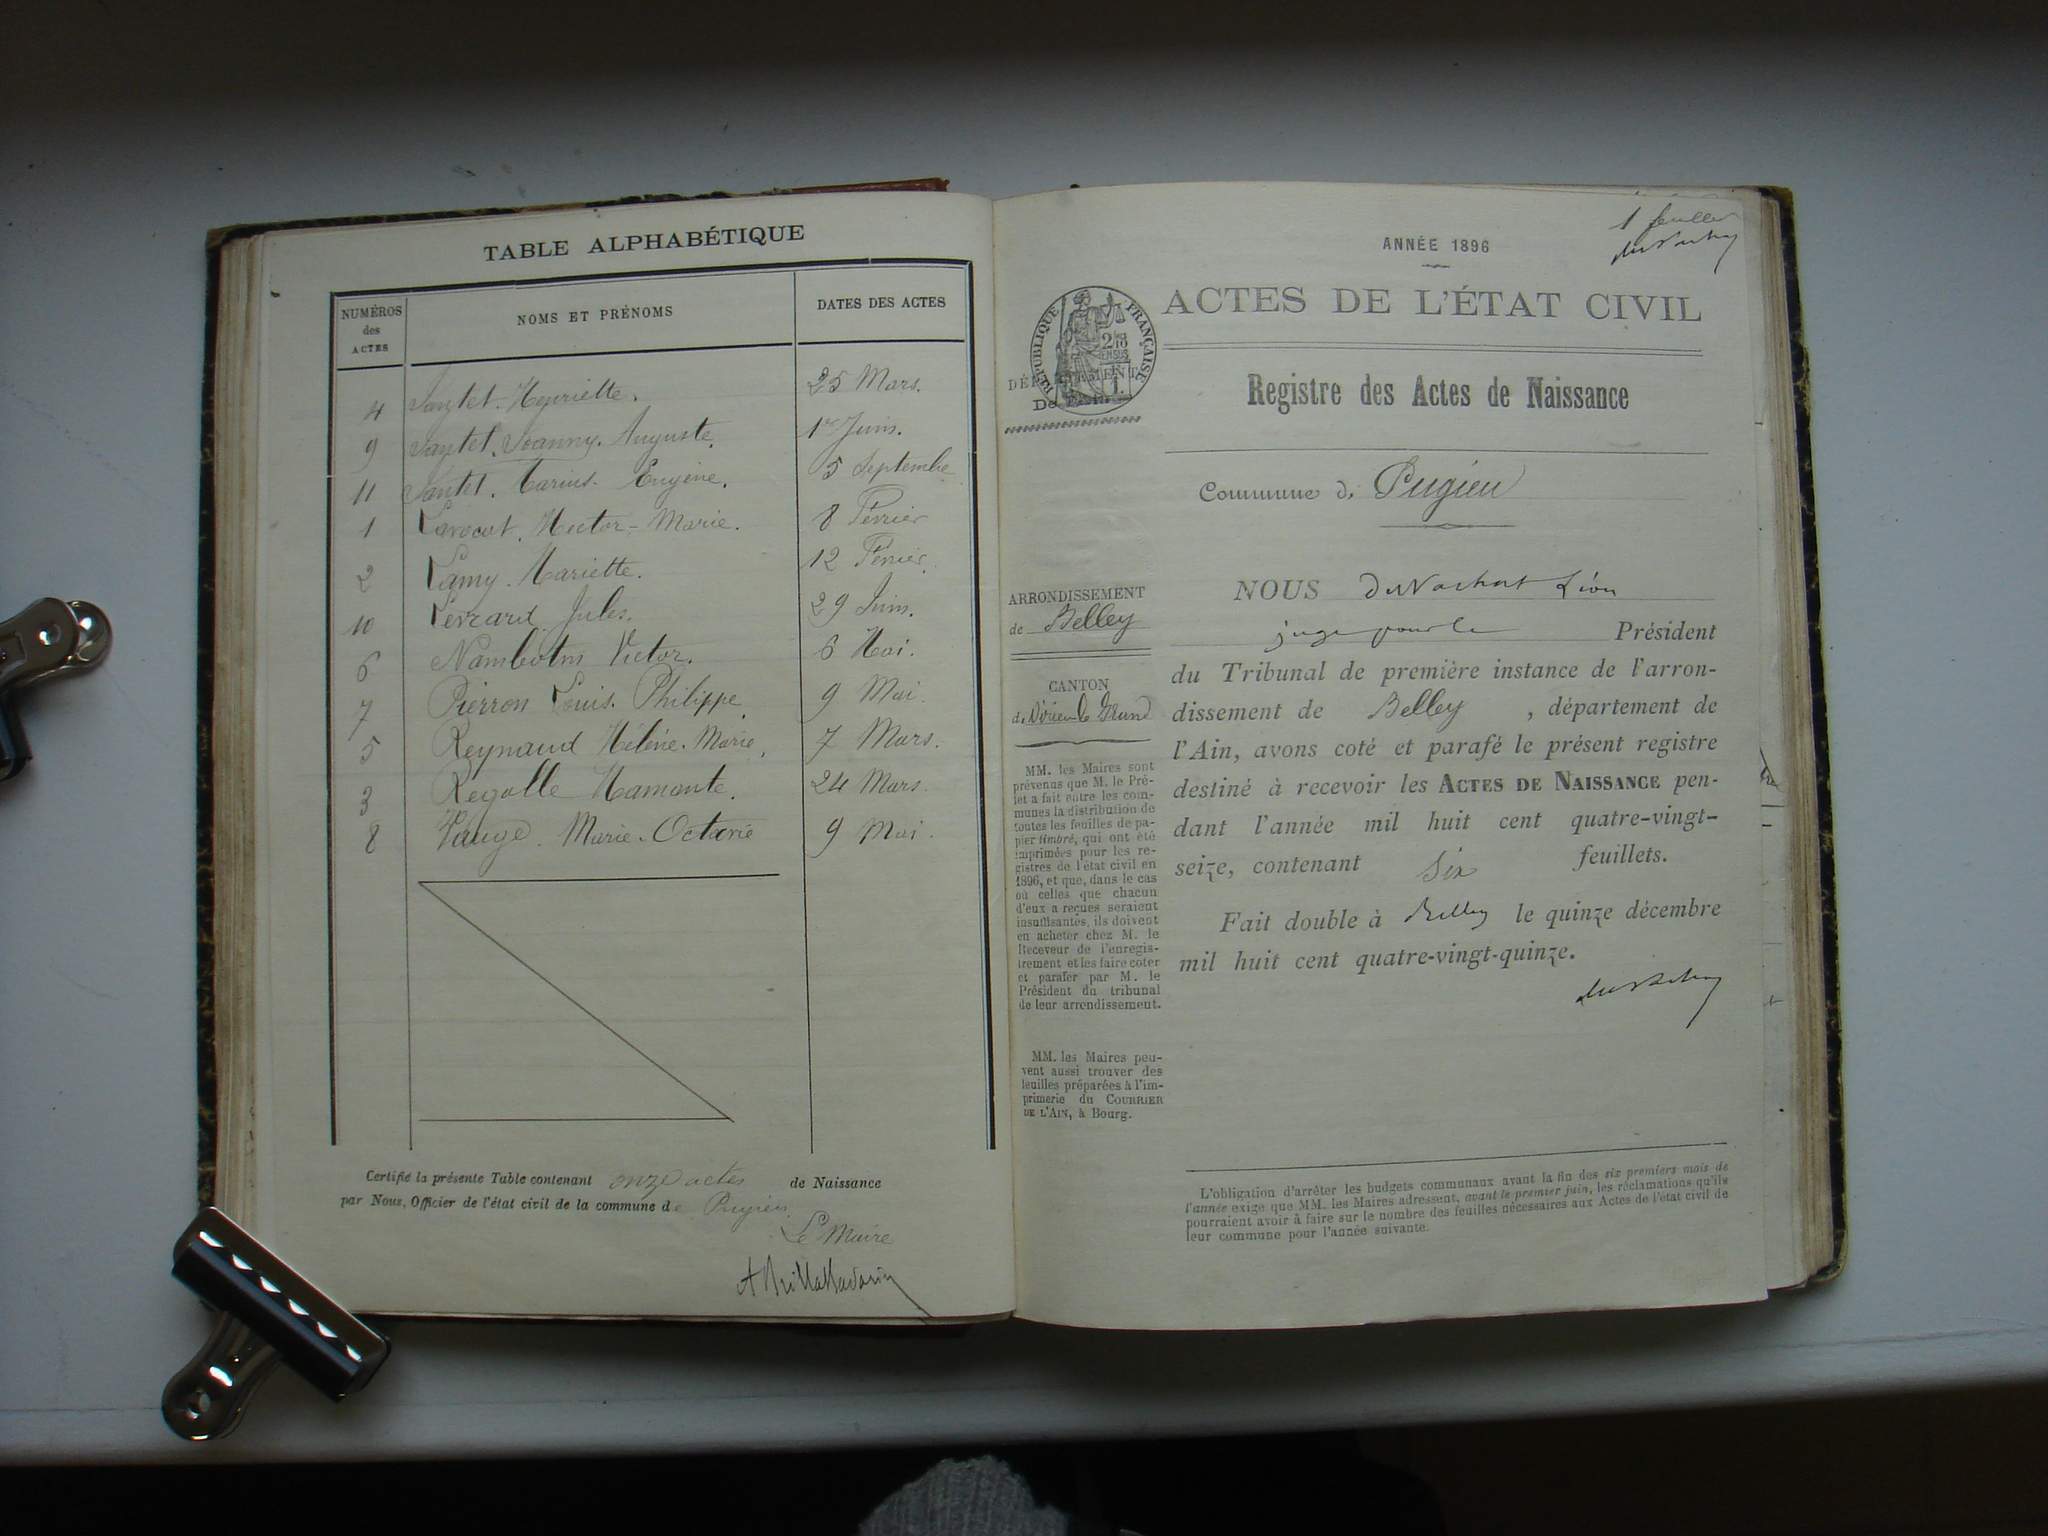 TABLE ALPHABÉTIQUE
NUMÉROS des ACTES
NOMS ET PRÉNOMS
DATES DES ACTES
4 Henriette. 25 Mars.
9 Joanny. Auguste. 1er Juin.
11 Marius. Eugène. 5 Septembre
1 Lavocat. Hector-Marie. 8 Février
2 Lamy. Mariette. 12 Février.
10 Jules. 29 Juin.
6 Victor. 6 Mai.
7 Pierron Louis. Philippe 9 Mai.
5 Reynaud Hélène. Marie. 7 Mars.
3 24 Mars.
8 Marie. Octavie 9 Mai.
Certifié la présente Table contenant onze actes de Naissance
par Nous, Officier de l'état civil de la commune de Pugieu
Le Maire
1 feuillet
ANNÉE 1896
ACTES DE L'ÉTAT CIVIL
RÉPUBLIQUE FRANÇAISE
DÉPARTEMENT
De L'Ain
Registre des Actes de Naissance
Commune de Pugieu
ARRONDISSEMENT
de Belley
CANTON
de Virieu le Grand
MM. les Maires sont
prévenus que M. le Pré-
fet a fait entre les com-
munes la distribution de
toutes les feuilles de pa-
pier timbré, qui ont été
imprimées pour les re-
gistres de l'état civil en
1896, et que, dans le cas
où celles que chacun
d'eux a reçues seraient
insuffisantes, ils doivent
en acheter chez M. le
Receveur de l'enregis-
trement et les faire coter
et parafer par M. le
Président du tribunal
de leur arrondissement.
MM. les Maires peu-
vent aussi trouver des
feuilles préparées à l'im-
primerie du COURRIER
DE L'AIN, à Bourg.
NOUS Léon
juge pour le Président
du Tribunal de première instance de l'arron-
dissement de Belley , département de
l'Ain, avons coté et parafé le présent registre
destiné à recevoir les ACTES DE NAISSANCE pen-
dant l'année mil huit cent quatre-vingt-
seize, contenant Six feuillets.
Fait double à Belley le quinze décembre
mil huit cent quatre-vingt-quinze.
L'obligation d'arrêter les budgets communaux avant la fin des six premiers mois de
l'année exige que MM. les Maires adressent, avant le premier juin, les réclamations qu'ils
pourraient avoir à faire sur le nombre des feuilles nécessaires aux Actes de l'état civil de
leur commune pour l'année suivante.